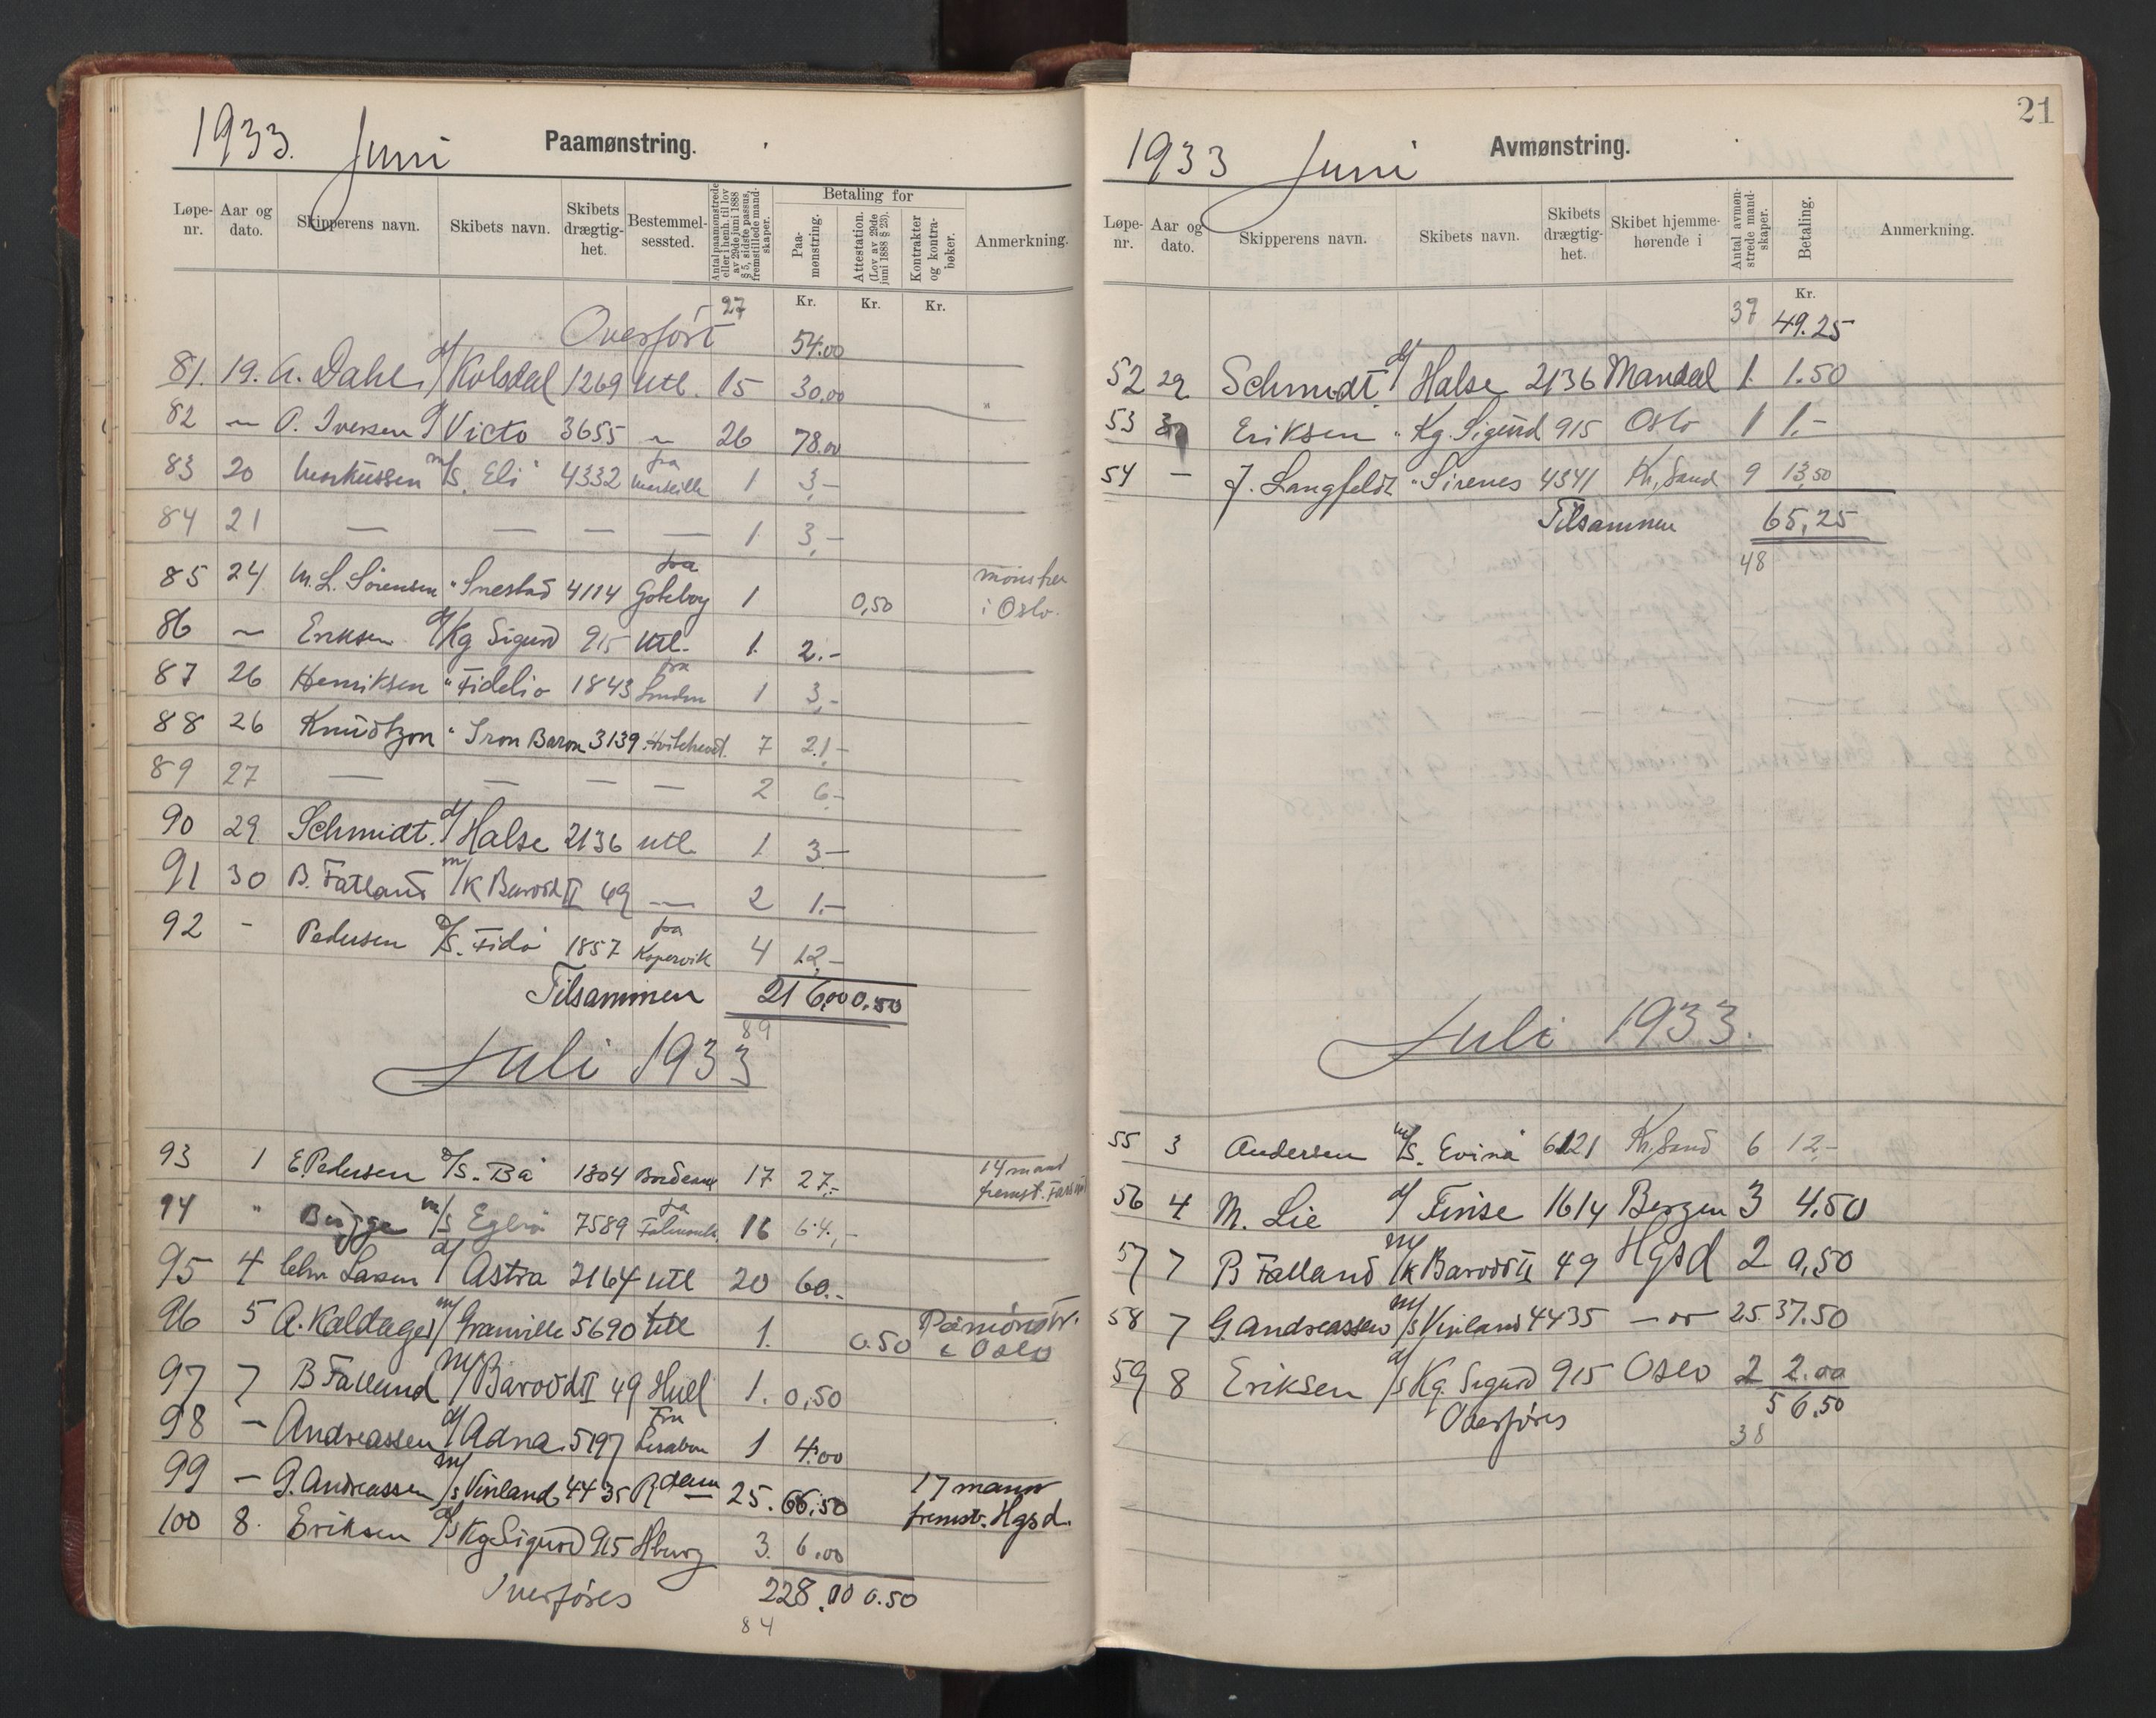 1933. Juni Paamønstring.
Løpe-nr. Aar og dato. Skipperens navn. Skibets navn. Skibets drægtig-het. Bestemmel-sessted. Antal paamønstrede eller i henh. til lov av 29de juni 1888 § 5, sidste passus, fremstillede mand-skaper. Betaling for Paa-mønstring. Attestation. (Lov av 29de juni 1888 § 23). Kontrakter og kontra-bøker. Anmerkning.
Kr. Kr. Kr.
Overført 27 54.00
81. 19. A. Dahl d/ Kolsdal 1269 Utl. 15 30.00
82 — O. Iversen d/ Victo 3655 — 26 78.00
83 20 Markussen m/s. Eli 4332 fra Marseille 1 3,-
84 21 — — — — 1 3,-
85 24 M. L. Sörensen " Snestad 4114 fra Goteborg 1 0,50 mönstret i Oslo.
86 — Eriksen d/ Kg Sigurd 915 Utl. 1. 2.-
87 26 Henriksen " Fidelio 1843 fra London 1 3,-
88 26 Knudtzon " Iron Baron 3139 7 21,-
89 27 — — — — 2 6,-
90 29 Schmidt. d/ Halse 2136 utl. 1. 3-
91 30 B. Fatland m/k Barodd II 49 — 2 1.-
92 - Pedersen d/s. Fido 1857 fra Kopervik 4 12,-
Tilsammen 216,00 0.50
89
Juli 1933
93 1 E Pedersen d/s. Bå 1304 Bordeaux 17 27,- 14 mand fremst. Farsund
94 " Bugge m/s Eglia 7589 fra 16 64,-
95 4 Chr Larsen d/ Astra 2164 utl 20 60.-
96 5 A. Kaldager m/ Granville 5690 Utl 1. 0.50 Påmönstr. i Oslo
97 7 B Falland m/ Barodd II 49 Hull 1. 0,50
98 — Andreassen d/ Adna 5197 Fra Lisabon 1 4.00
99 — G. Andreassen m/s Vinland 4435 Rdam 25. 66,50 17 mann fremst. Hgsd.
100 8. Eriksen d/s Kg Sigurd 915 Hburg 3. 6.00
Overföres 228.00 0.50
84
21
1933 Juni Avmønstring.
Løpe-nr. Aar og dato. Skipperens navn. Skibets navn. Skibets drægtig-het. Skibet hjemme-hørende i Antal avmøn-strede mand-skaper. Betaling. Anmerkning.
Kr.
37 49.25
52 29 Schmidt. d/ Halse 2136 Mandal 1. 1.50
53 30 Eriksen " Kg. Sigurd 915 Oslo 1 1.-
54 — J. Langfeldt " Sirenes 4341 Kr, Sand 9 13,50
Tilsammen 65,25
48
Juli 1933.
55 3 Andersen m/s. Evina 6121 Kr, Sand 6 12,-
56 4 M. Lie d/ Finse 1614 Bergen 3 4,50
57 7 B Falland m/k Barodd II 49 Hgsd 2 0,50
58 7 G. Andreassen m/s Vinland 4435 — " — 25. 37.50
59 8 Eriksen d/s Kg. Sigurd 915 Oslo 2 2.00
Overföres 56.50
38